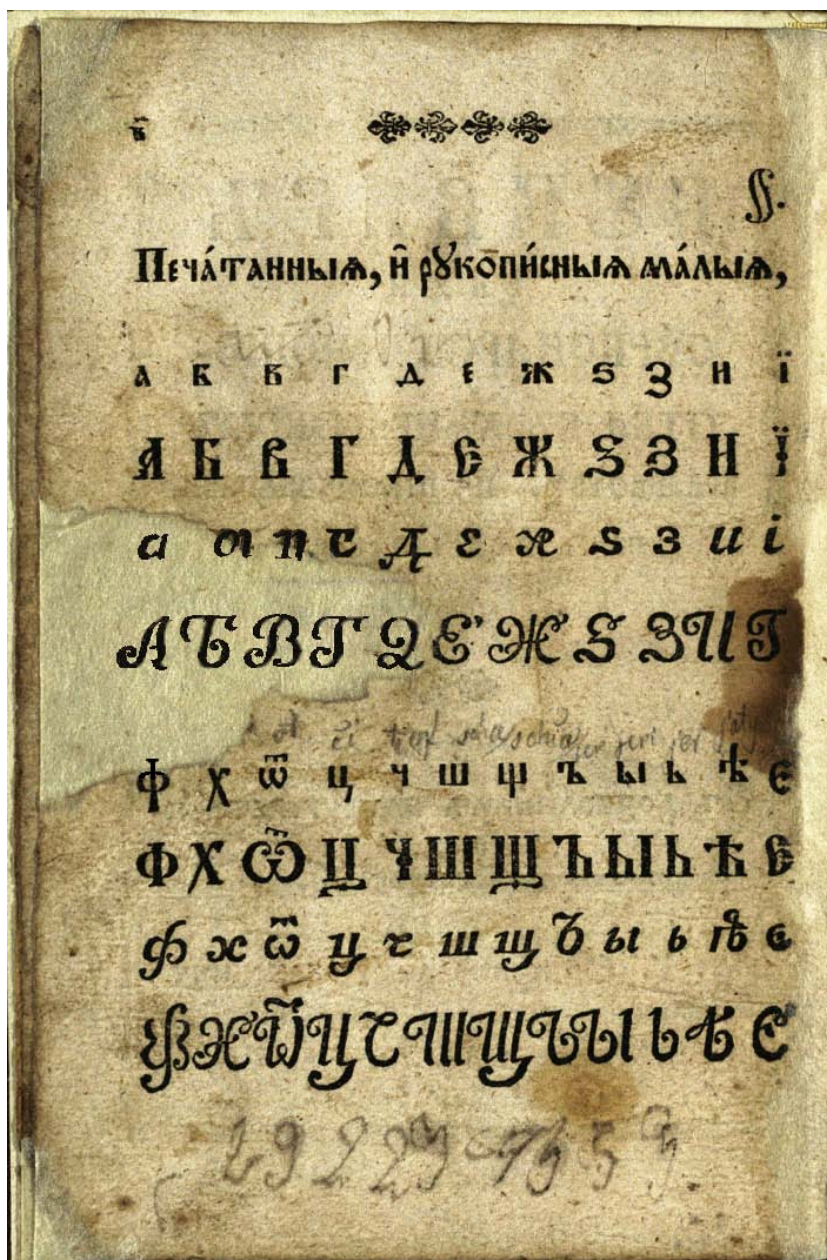 в҃
§.
Печа́танныѧ, и҆̀ рꙋкопи́сныѧ ма́лыѧ,
а б в г д е ж ѕ з и ї
А Б В Г Д Е Ж Ѕ З И Ї
а б в г д е ж ѕ з и і
А Б В Г Д Е Ж Ѕ З И І
ф х ѿ ц ч ш щ ъ ы ь ѣ є
Ф Х Ѿ Ц Ч Ш Щ Ъ Ы Ь Ѣ Є
ф х ѿ ц ч ш щ ъ ы ь ѣ є
Ф Х Ѿ Ц Ч Ш Щ Ъ Ы Ь Ѣ Є